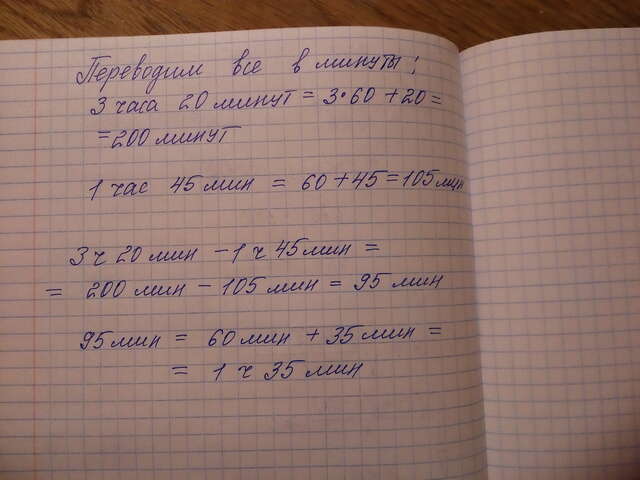 Переводим все в минуты:
3 часа 20 минут = 3·60 + 20 =
= 200 минут
1 час 45 мин = 60 + 45 = 105 мин
3 ч 20 мин - 1 ч 45 мин =
= 200 мин - 105 мин = 95 мин
95 мин = 60 мин + 35 мин =
= 1 ч 35 мин